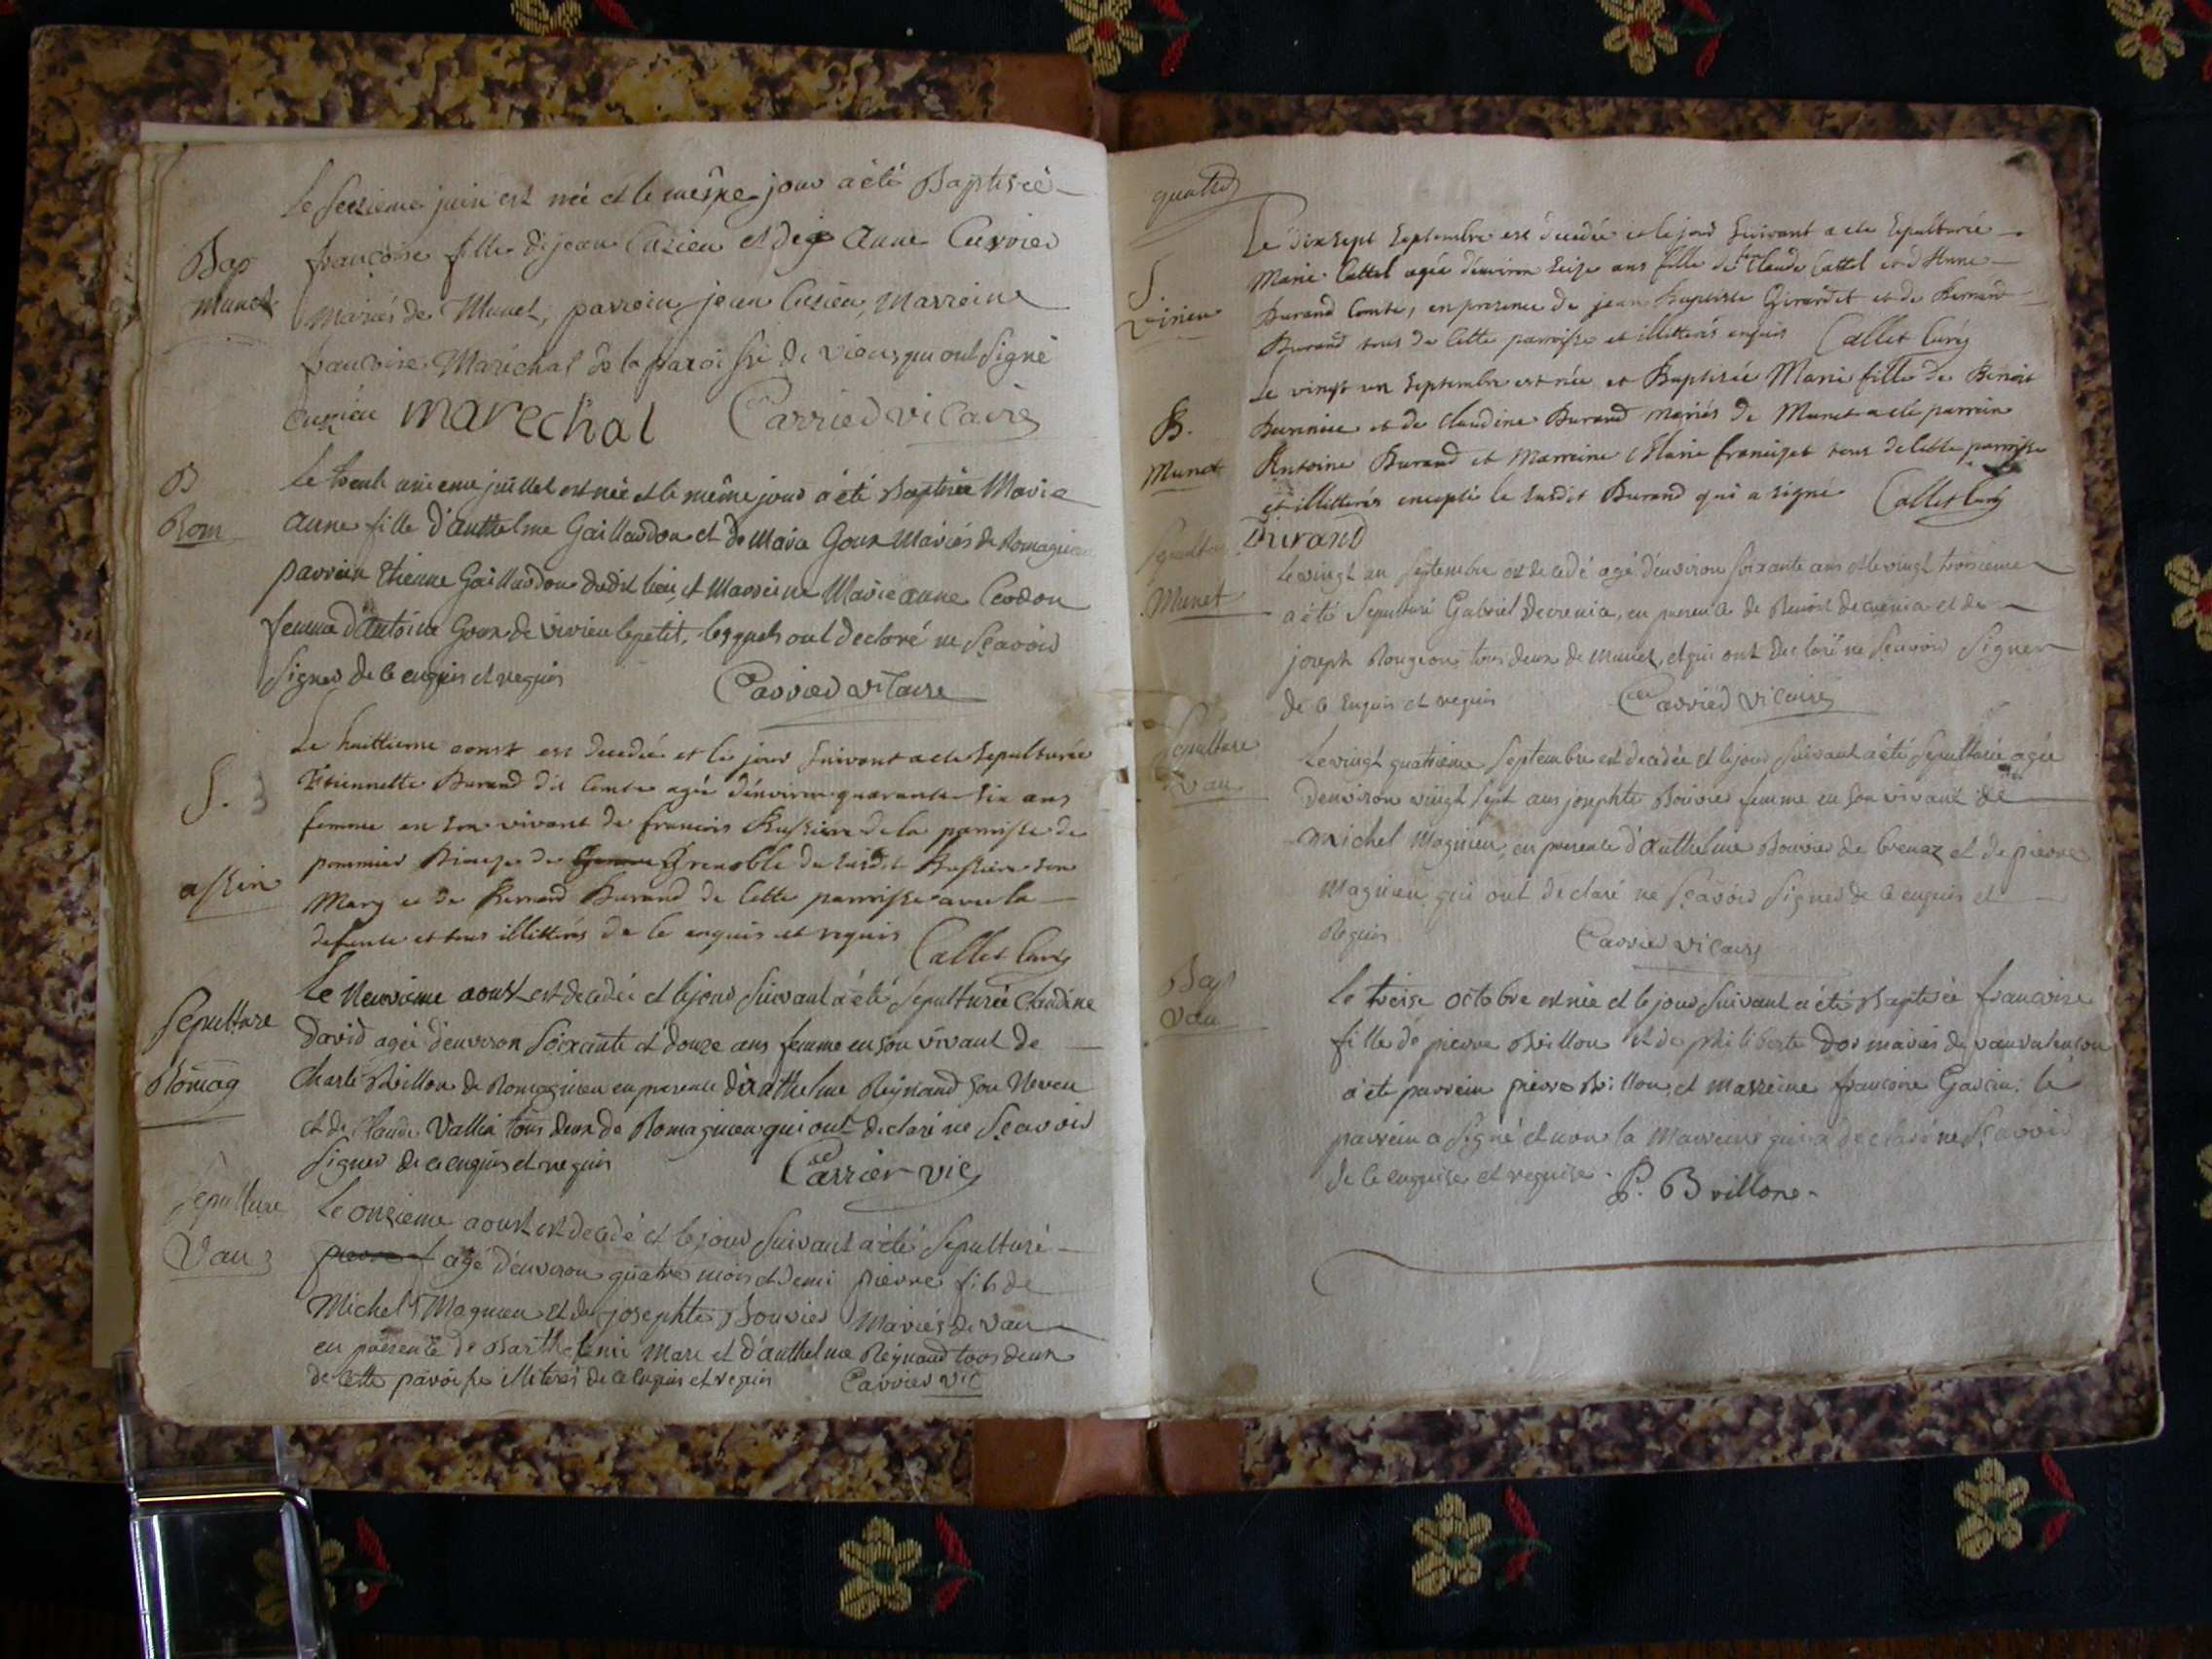 Le seizieme juin est née et le mesme jour a été Baptisée
Bap françoise fille de jean Cuzieu et de anne Cuvvier
Munet Mariés de Munet, parrein jean Cuzieu, Marreine
francoise Maréchal de la paroisse de vieu, qui ont signé
Cuzieu marechal Carrier vicaire
B Le trente unieme juillet est née et le même jour a été Baptisée Marie
Rom anne fille d'anthelme Gaillardon et de Maria Goux Mariés de Romagnieu
parrein Etienne Gaillardon dudit lieu, et Marreine Marie anne Ceodon
femme d'antoine Goux de virieu le petit, lesquels ont declaré ne sçavoir
signer de ce enquis et requis Carrier vicaire
Le huittieme aoust est decedée et le jour suivant a ete sepulturée
S. Etiennette Durand dit Comte agée d'environ quarante six ans
femme en son vivant de francois Bussiere de la parroisse de
pommier Diocese de Grenoble du susdit Bussiere son
assin Mary et de Bernard Durand de cette parroisse avec la
defunte et tous illittérés de ce enquis et requis Callet Curé
Le Neuvieme aoust est decedée et le jour suivant a été sepulturée Claudine
Sepulture David agée d'environ soixante et douze ans femme en son vivant de
Romag Charle Brillon de Romagnieu en presence d'anthelme Reynaud son Neveu
et de Claude Vallin tous deux de Romagnieu qui ont declaré ne sçavoir
signer de ce enquis et requis Carrier vic
Sepulture Le onzieme aoust est decedé et le jour suivant a été sepulturé
Vau pierre agé d'environ quatre mois et demi pierre fils de
Michel Magnieu et de josephte Bouvier Mariés de vau
en presence de Barthelemi Mare et d'anthelme Reynaud tous deux
de cette paroisse illiterés de ce enquis et requis Carrier vic
quatre
Le dix sept septembre est decedée et le jour suivant a ete sepulturée
S Marie Cattel agée d'environ seize ans fille de feu Claude Cattel et d'Anne
Virieu Durand Comte, en presence de jean Baptiste Girardet et de Bernard
Durand tous de cette parroisse et illitterés enquis Callet Curé
Le vingt un septembre est née et Baptisée Marie fille de Benoit
B. et de Claudine Durand mariés de Munet a ete parrein
Munet Antoine Durand et Marreine Marie francizet tous de cette parroisse
et illitterés excepté le susdit Durand qui a signé Callet Curé
Durand
Sepulture Le vingt un septembre est decedé agé d'environ soixante ans et le vingt troisieme
Munet a été sepulturé Gabriel Decrenia, en presence de Benoit decrenia et de
joseph Rougeon, tous deux de Munet, et qui ont declaré ne sçavoir signer
de ce enquis et requis Carrier vicaire
Sepulture Le vingt quatrieme septembre est decedée et le jour suivant a été sepulturée agée
Vau d'environ vingt sept ans josephte Bouvier femme en son vivant de
michel Magnieu, en presence d'anthelme Bouvier de brenaz et de pierre
Magnieu qui ont declaré ne sçavoir signer de ce enquis et
Requis Carrier vicaire
Bap Le treise octobre est née et le jour suivant a été Baptisée francoise
Vau fille de pierre Brillon et de philiberte Dor mariés de vau
a été parrein pierre Brillon et marreine francoise Garcin. le
parrein a signé et non la Marreine qui a declaré ne sçavoir
de ce enquise et requise. P. Brillon.